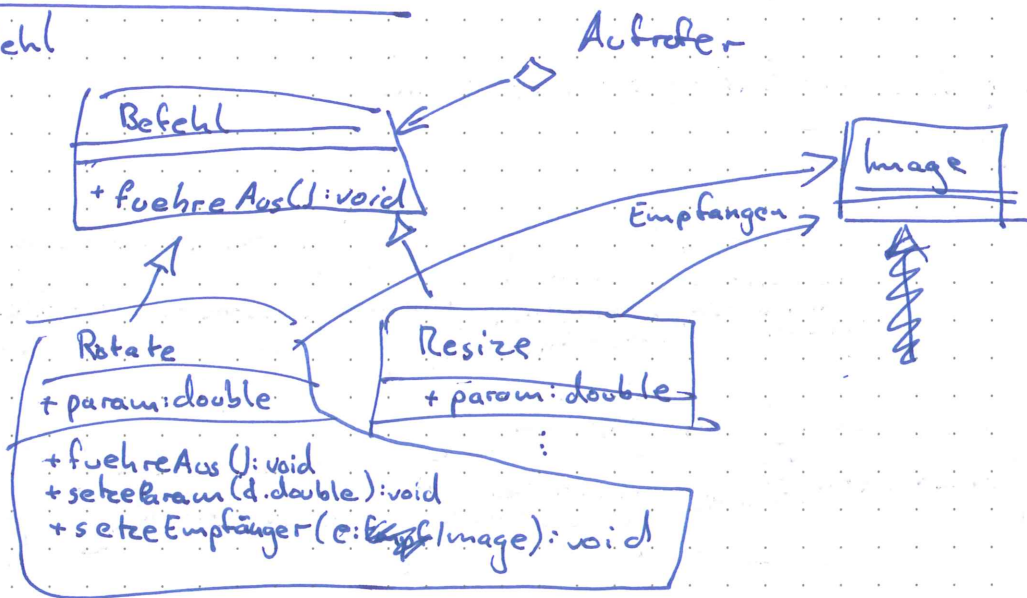 ehl
Aufrufer
Befehl
+ fuehreAus(): void
Image
Empfangen
Rotate
+ param: double
+ fuehreAus(): void
+ setzeParam(d.double): void
+ setzeEmpfänger(e: Image): void
Resize
+ param: double
⋮